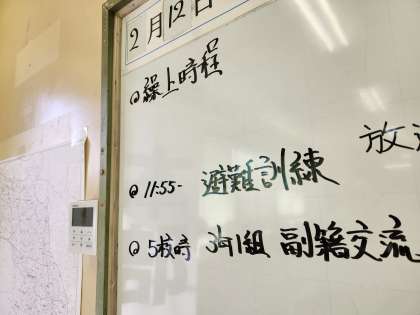 2月12日
◎繰上時程
放
◎11:55- 避難訓練
◎5校時 3年1組 副籍交流